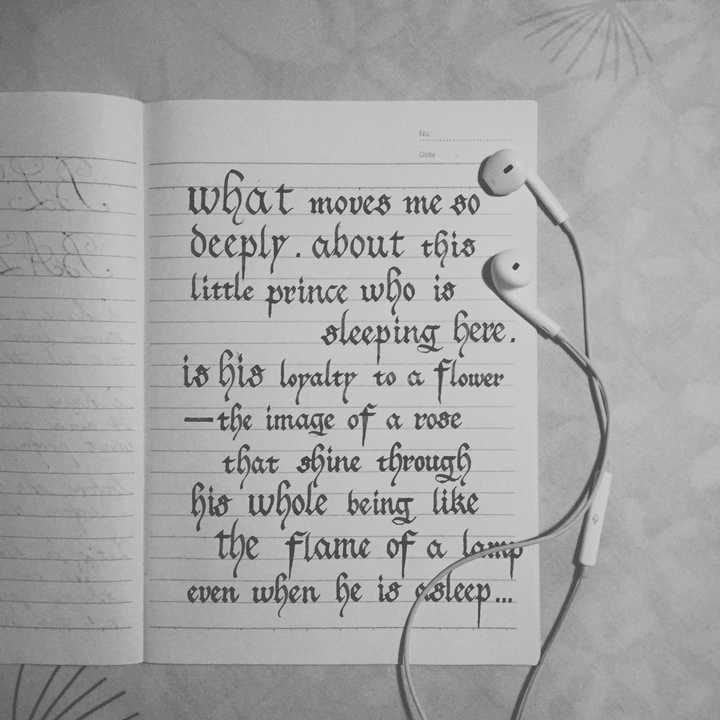 No.
Date
what moves me so
deeply. about this
little prince who is
sleeping here.
is his loyalty to a flower
—the image of a rose
that shine through
his whole being like
the flame of a lamp
even when he is asleep...